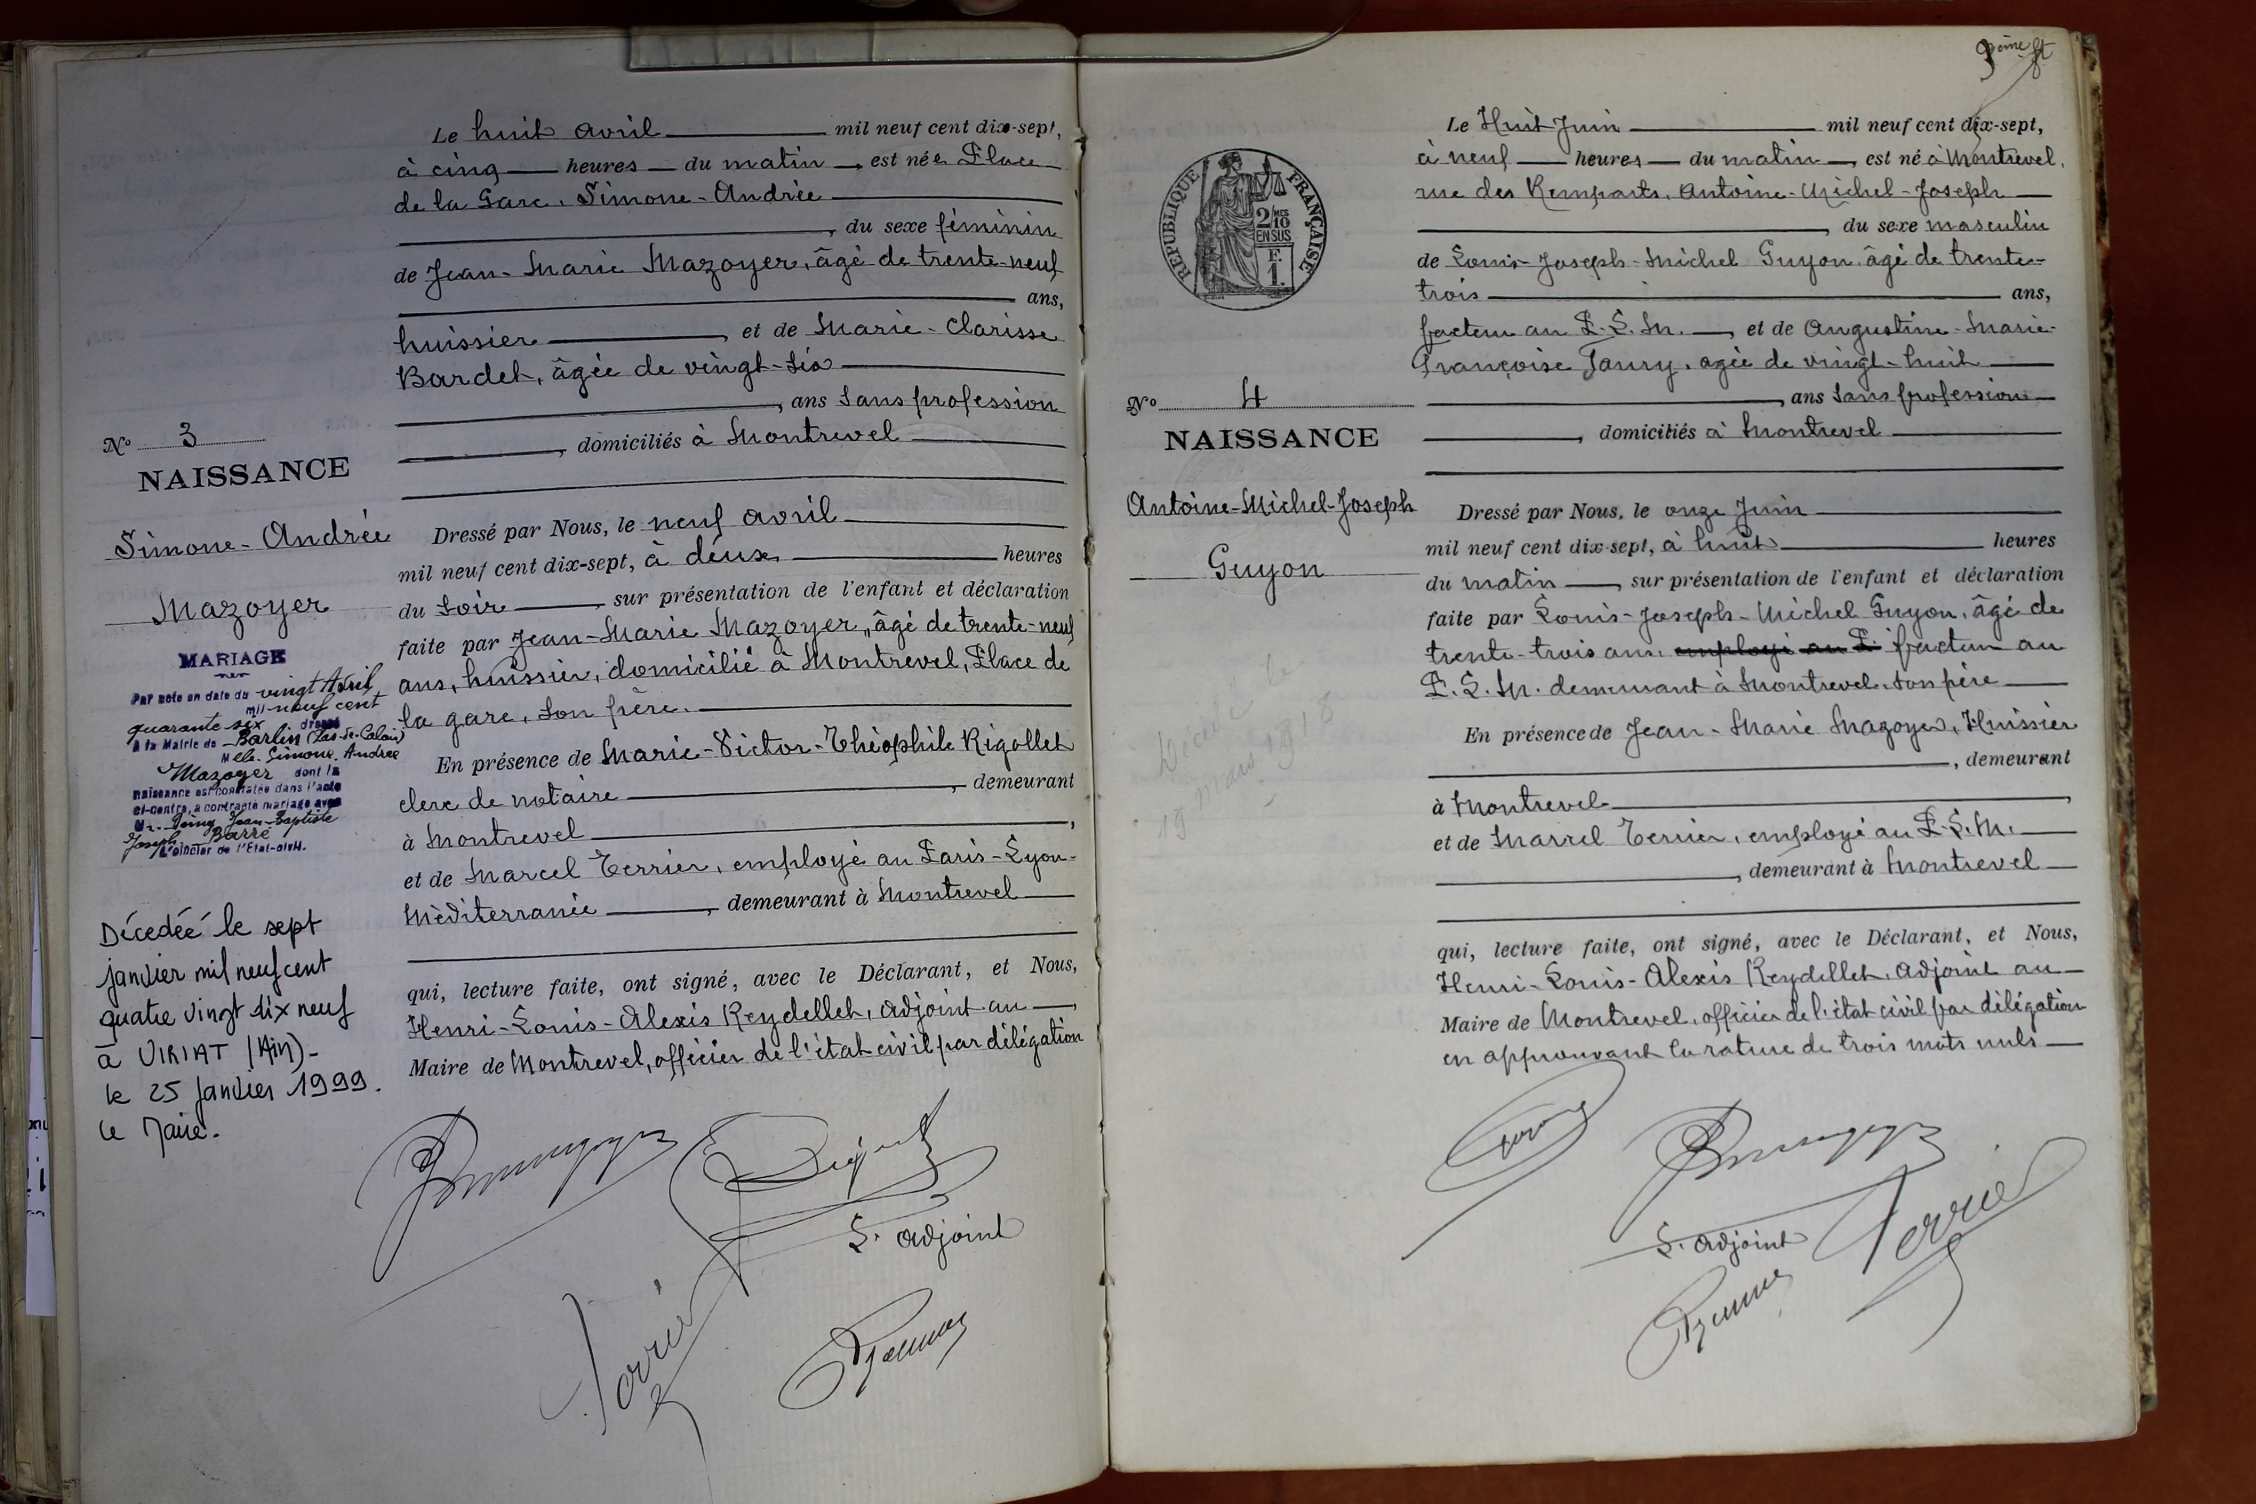 Le huit avril mil neuf cent dix-sept,
à cinq heures du matin, est née Place
de la Gare, Simone-Andrée
, du sexe féminin
de Jean-Marie Mazoyer, âgé de trente-neuf
ans,
huissier, et de Marie-Clarisse
Bardet, âgée de vingt-six
, ans sans profession
, domiciliés à Montrevel
No 3
NAISSANCE
Simone-Andrée
Mazoyer
Dressé par Nous, le neuf avril
mil neuf cent dix-sept, à deux heures
du soir, sur présentation de l'enfant et déclaration
faite par Jean-Marie Mazoyer, âgé de trente-neuf
ans, huissier, domicilié à Montrevel, Place de
la gare, son père.
En présence de Marie-Victor-Théophile Rigollet
clerc de notaire, demeurant
à Montrevel,
et de Marcel Terrier, employé au Paris-Lyon-
Méditerranée, demeurant à Montrevel
qui, lecture faite, ont signé, avec le Déclarant, et Nous,
Henri-Louis-Alexis Reydellet, adjoint au
Maire de Montrevel, officier de l'état civil par délégation
MARIAGE
Par acte en date du vingt Avril
mil neuf cent
quarante six dressé
à la Mairie de Barlin (Pas-de-Calais)
Melle Simone Andrée
Mazoyer dont la
naissance est constatée dans l'acte
ci-contre, a contracté mariage avec
Mr. Jean-Baptiste
Joseph Barré
L'officier de l'Etat-civil.
Décedée le sept
janvier mil neuf cent
quatre vingt dix neuf
à VIRIAT (Ain)-
le 25 janvier 1999.
le Maire.
L'adjoint
Terrier
2ème ft
Le Huit Juin mil neuf cent dix-sept,
à neuf heures du matin, est né à Montrevel,
rue des Remparts, Antoine-Michel-Joseph
, du sexe masculin
de Louis-Joseph-Michel Guyon, âgé de trente-
trois ans,
facteur au P.L.M., et de Augustine-Marie-
Françoise Taury, agée de vingt-huit
, ans sans profession
, domiciliés à Montrevel
REPUBLIQUE FRANÇAISE
2/10 MES
EN SUS
F.
1.
No 4
NAISSANCE
Antoine-Michel-Joseph
Guyon
Décédé le
19 mars 1918
Dressé par Nous, le onze Juin
mil neuf cent dix-sept, à huit heures
du matin, sur présentation de l'enfant et déclaration
faite par Louis-Joseph-Michel Guyon, âgé de
trente-trois ans, employé au P. facteur au
P.L.M. demeurant à Montrevel, son père
En présence de Jean-Marie Mazoyer, Huissier
, demeurant
à Montrevel,
et de Marcel Terrier, employé au P.L.M.
, demeurant à Montrevel
qui, lecture faite, ont signé, avec le Déclarant, et Nous,
Henri-Louis-Alexis Reydellet, adjoint au
Maire de Montrevel, officier de l'état civil par délégation
en approuvant la rature de trois mots nuls
L'adjoint
Terrier